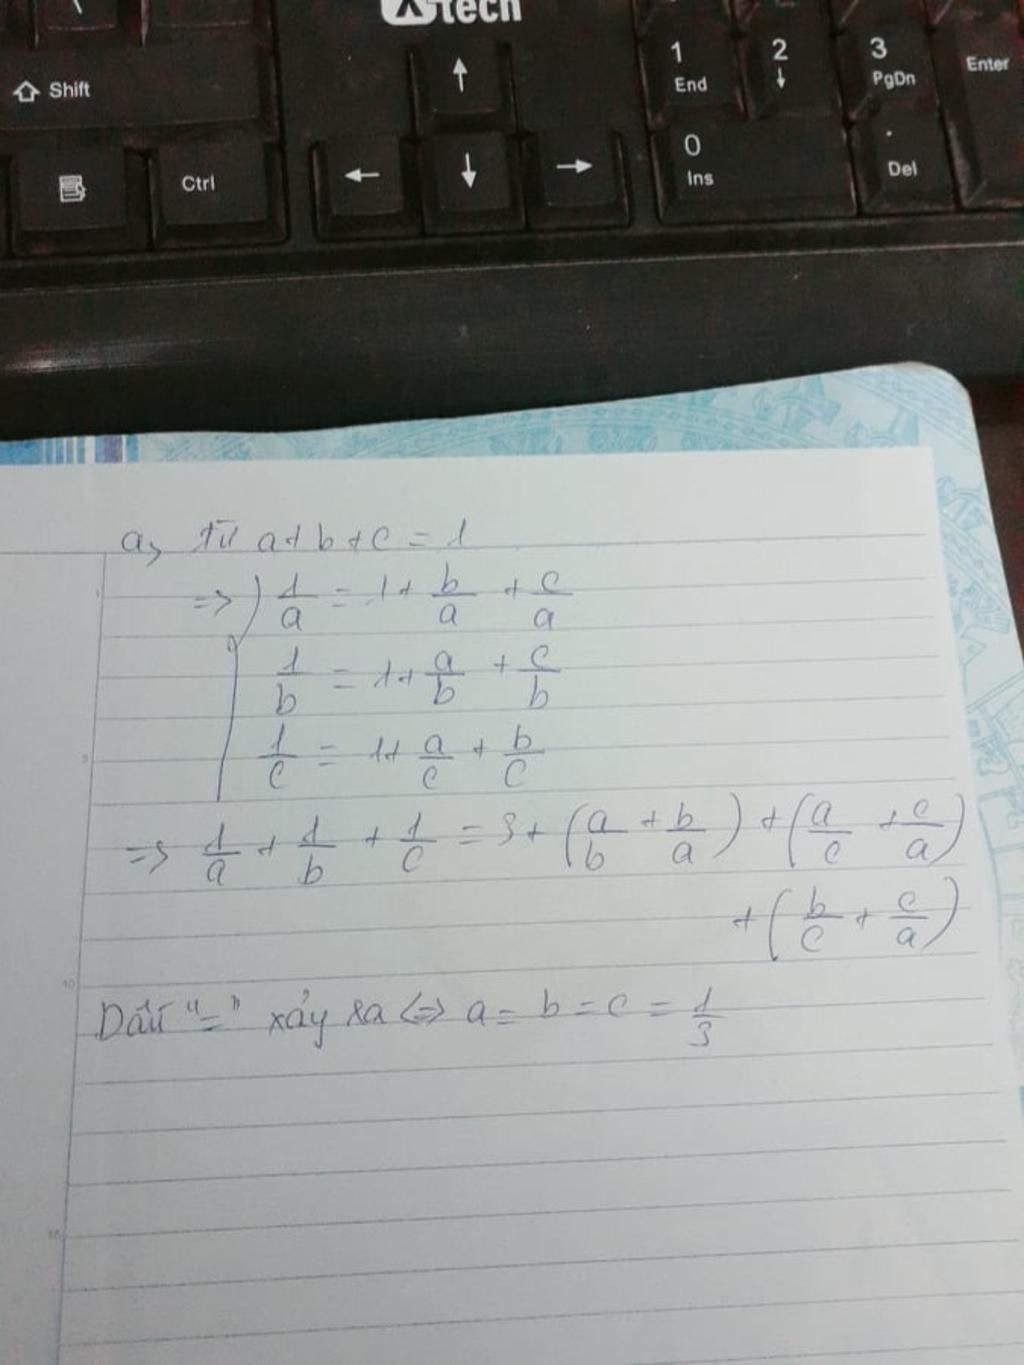 tech
1 End
2 ↓
3 PgDn
Enter
Shift
↑
0 Ins
. Del
Ctrl
← ↓ →
a, từ a+b+c = 1
=> 1/a = 1 + b/a + c/a
1/b = 1 + a/b + c/b
1/c = 1 + a/c + b/c
=> 1/a + 1/b + 1/c = 3 + (a/b + b/a) + (a/c + c/a)
+ (b/c + c/a)
Dấu "=" xảy ra <=> a = b = c = 1/3
5
10
15